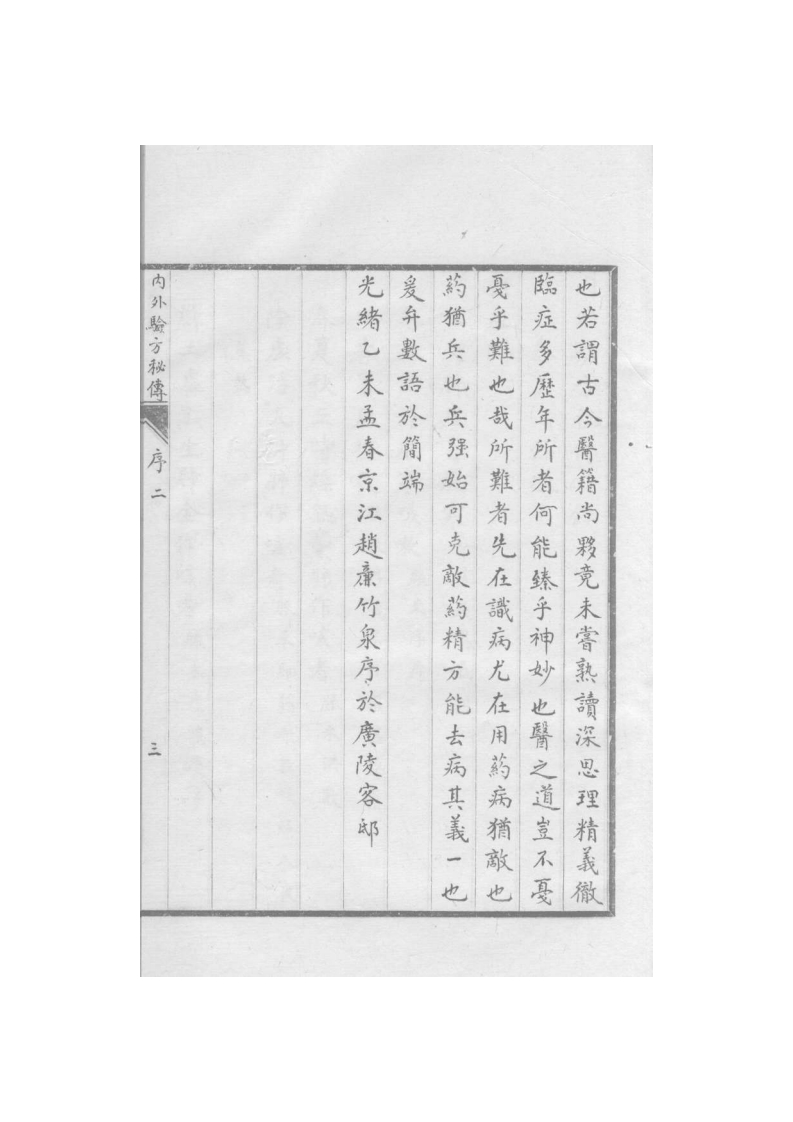 也若謂古今醫籍尚夥竟未嘗熟讀深思理精義徹
臨症多歷年所者何能臻乎神妙也醫之道豈不憂
憂乎難也哉所難者先在識病尤在用葯病猶敵也
葯猶兵也兵强始可克敵葯精方能去病其義一也
爰弁數語於簡端
光緒乙未孟春京江趙濂竹泉序於廣陵客邸
內外驗方秘傳
序二
三